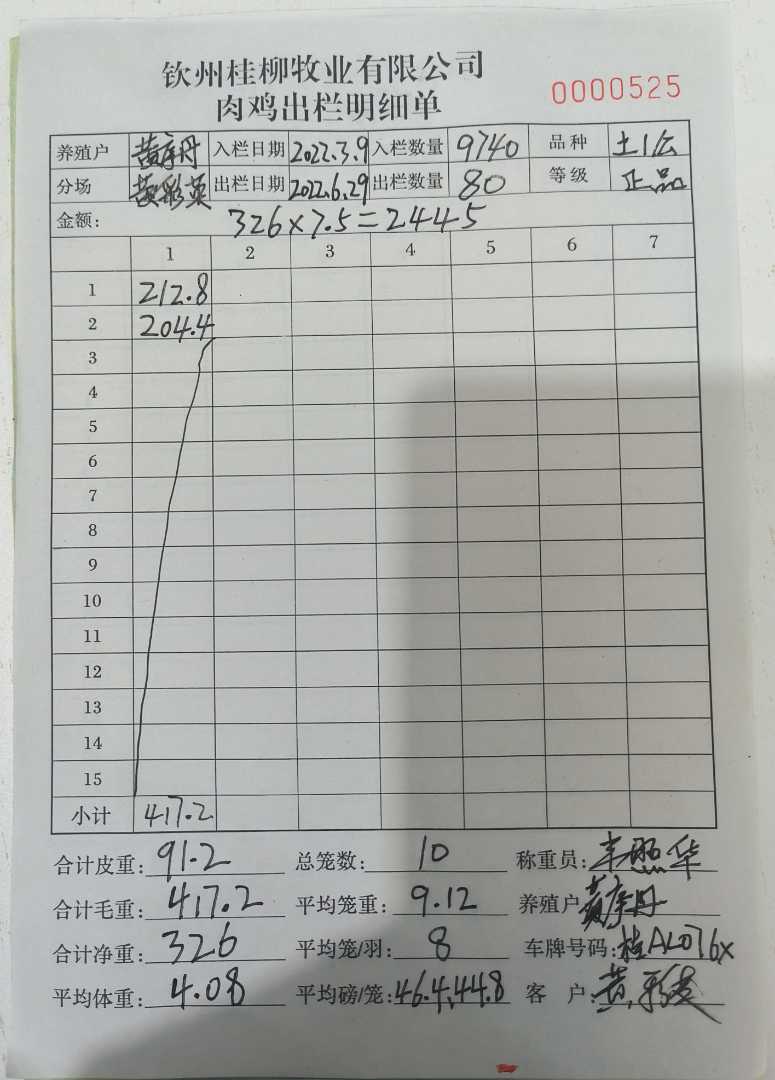 钦州桂柳牧业有限公司
肉鸡出栏明细单
0000525
养殖户 黄 丹 入栏日期 2022.3.9 入栏数量 9740 品种 土1公
分场 黄彩英 出栏日期 2022.6.29 出栏数量 80 等级 正品
金额: 326×7.5=2445
1 2 3 4 5 6 7
1 212.8
2 204.4
3
4
5
6
7
8
9
10
11
12
13
14
15
小计 417.2
合计皮重: 91.2 总笼数: 10 称重员: 照华
合计毛重: 417.2 平均笼重: 9.12 养殖户 黄 丹
合计净重: 326 平均笼/羽: 8 车牌号码: 桂AL076X
平均体重: 4.08 平均磅/笼: 46.4,44.8 客 户: 黄彩英